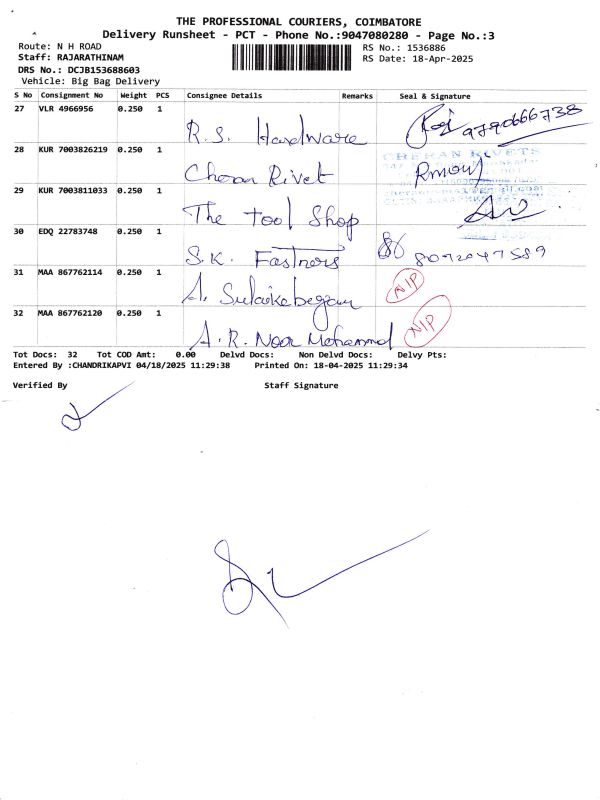 THE PROFESSIONAL COURIERS, COIMBATORE
Delivery Runsheet - PCT - Phone No.:9047080280 - Page No.:3
Route: N H ROAD
RS No.: 1536886
Staff: RAJARATHINAM
RS Date: 18-Apr-2025
DRS No.: DCJB153688603
Vehicle: Big Bag Delivery
S No Consignment No Weight PCS Consignee Details Remarks Seal & Signature
27 VLR 4966956 0.250 1 R.S. Hardware 9790666738
28 KUR 7003826219 0.250 1 Cheran Rivet CHERAN RIVETS
29 KUR 7003811033 0.250 1 The Tool Shop
30 EDQ 22783748 0.250 1 S.K. Fastners 8072047589
31 MAA 867762114 0.250 1 A. Sulaikabegam N/P
32 MAA 867762120 0.250 1 A.R. Noor Mohammed N/P
Tot Docs: 32 Tot COD Amt: 0.00 Delvd Docs: Non Delvd Docs: Delvy Pts:
Entered By :CHANDRIKAPVI 04/18/2025 11:29:38 Printed On: 18-04-2025 11:29:34
Verified By Staff Signature